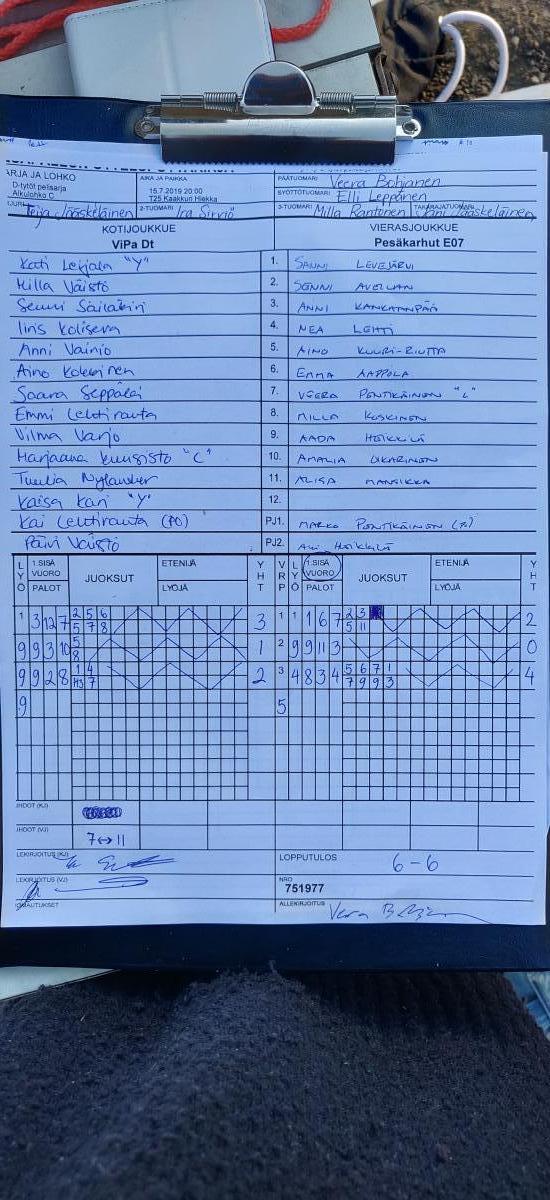 ARJA JA LOHKO
D-tytöt pelisarja
Alkulohko C
AIKA JA PAIKKA
15.7.2019 20:00
T25 Kaakkuri Hiekka
PÄÄTUOMARI Veera Bohjanen
SYÖTTÖTUOMARI Elli Leppänen
Teija Jääskeläinen 2-TUOMARI Ira Sirviö 3-TUOMARI Milla Rantonen TAKARAJATUOMARI Jani Jääskeläinen
KOTIJOUKKUE VIERASJOUKKUE
ViPa Dt Pesäkarhut E07
Kati Leijala "Y" 1. SANNI LEVEJÄRVI
Milla Väistö 2. SENNI AVELLAN
Senni 3. ANNI KANKAANPÄÄ
Iiris 4. NEA LEHTI
Anni Vainio 5. AINO KUURI-RIUTTA
Aino 6. EMMA AAPPOLA
Saara Seppälä 7. VEERA PONTKÄINEN "L"
Emmi Lehtirauta 8. MILLA KOSKINEN
Vilma Varjo 9. AADA HEIKKILÄ
Marjaana Kuusisto "C" 10. AMALIA
Tuulia Nylander 11. ALISA MANSIKKA
Kaisa Kari "Y" 12.
Kai Lehtirauta (PO) PJ1. MARKO PONTKÄINEN
Päivi Väistö PJ2. Heikkilä
LYÖ 1.SISÄ VUORO PALOT JUOKSUT ETENIJÄ LYÖJÄ YHT VRP LYÖ 1.SISÄ VUORO PALOT JUOKSUT ETENIJÄ LYÖJÄ YHT
1 3 12 7 2 5 6 3 1 1 1 6 7 2 3 2
5 7 8 5 11
9 9 3 10 5 1 2 9 9 11 3 0
8
9 9 2 8 1 4 2 3 4 8 3 4 5 6 7 1 4
7 7 9 9 3
9 5
JHDOT (KJ)
JHDOT (VJ) 7↔11
LEKIRJOITUS (KJ)
LOPPUTULOS 6-6
LEKIRJOITUS (VJ)
NRO
751977
OMAUTUKSET
ALLEKIRJOITUS